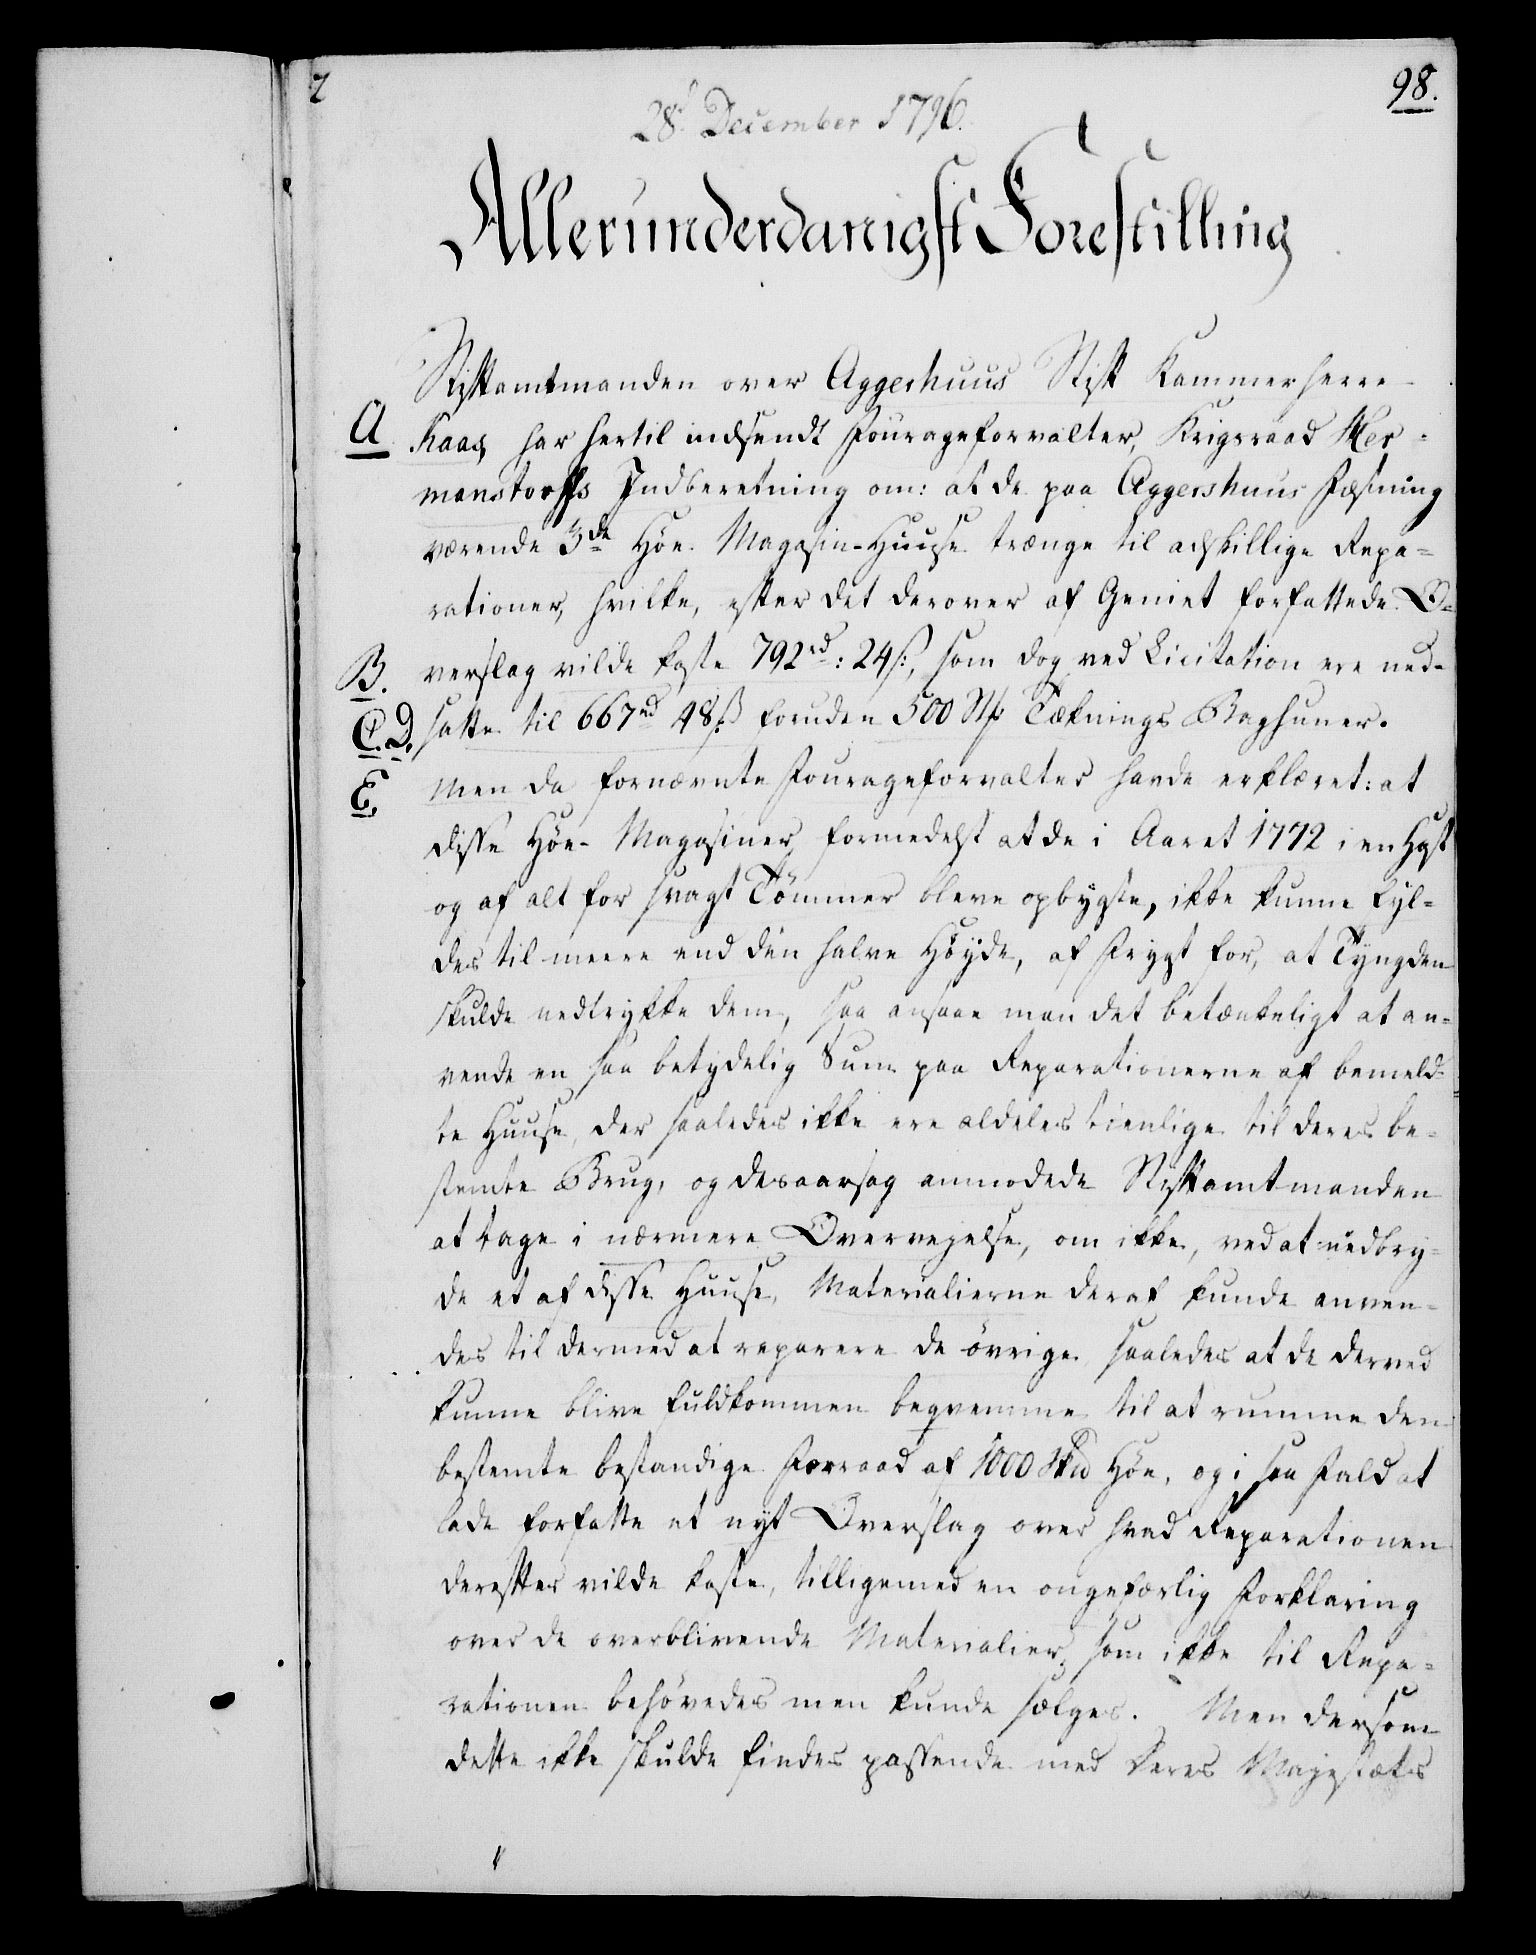 98.
28d December 1796.
Allerunderdanigst Forestilling
Stiftamtmanden over Aggershuus Stift Kammerherre
A Kaas, har hertil indsendt Fourageforvalter, Krigsraad Her-
manstorffs Indberetning om: at de paa Aggershuus Fæstning
værende 3de Höe Magasin-Huuse trænge til adskillige Repa-
rationer, hvilke, efter det derover af Geniet forfattede O-
B. verslag vilde koste 792rd: 24ß:, som dog ved Licitation ere ned-
C. D. satte til 667rd 48ß: foruden 500 St: Tæknings Baghuner.
E. Men da fornævnte Fourageforvalter havde erklæret: at
disse Höe-Magasiner, formedelst at de i Aaret 1772 i en Hast
og af alt for svagt Tömmer bleve opbygte, ikke kunne fyl-
des til meere end den halve Höyde, af Frygt for, at Tyngden
skulde nedtrykke dem, saa ansaae man det betænkeligt at an-
vende en saa betydelig Sum paa Reparationerne af bemeld-
te Huuse, der saaledes ikke ere aldeles tienlige til deres be-
stemte Brug, og desaarsag anmodede Stiftamtmanden
at tage i nærmere Overvejelse, om ikke, ved at nedbry-
de et af disse Huuse, Materialierne deraf kunde anven-
des til dermed at reparere de övrige saaledes at de derved
kunne blive fuldkommen beqvemme til at rumme den
bestemte bestandige Forraad af 1000 Skd Höe, og i saa Fald at
lade forfatte et nyt Overslag over hvad Reparationen
derefter vilde koste, tilligemed en ongefærlig Forklaring
over de overblivende Materialier, som ikke til Repa-
rationen behövedes men kunde sælges. Men dersom
dette ikke skulde findes passende med Deres Majestæts